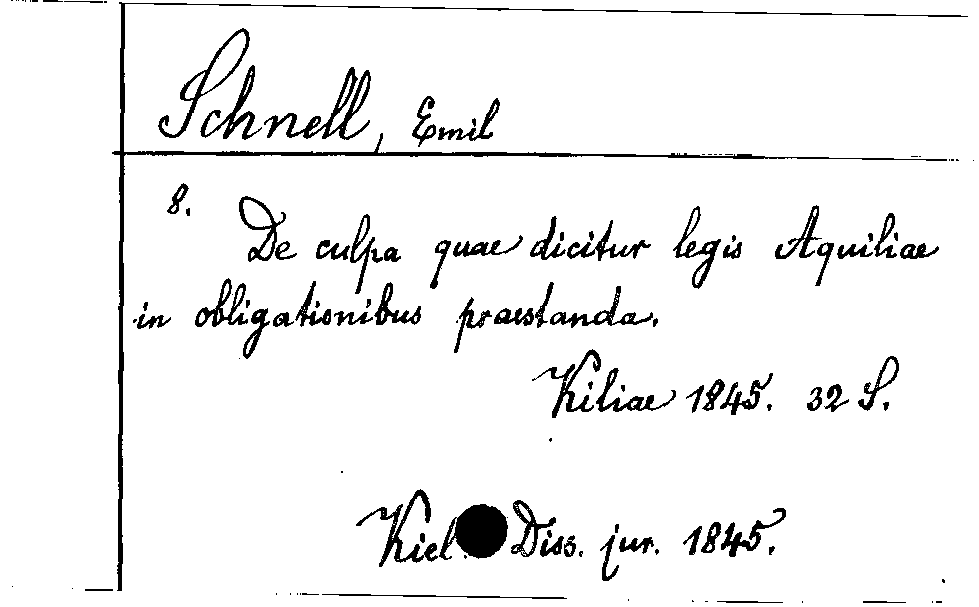 Schnell, Emil
8.
De culpa quae dicitur legis Aquiliae
in obligationibus praestanda.
Kiliae 1845. 32 S.
Kiel. Diss. jur. 1845.